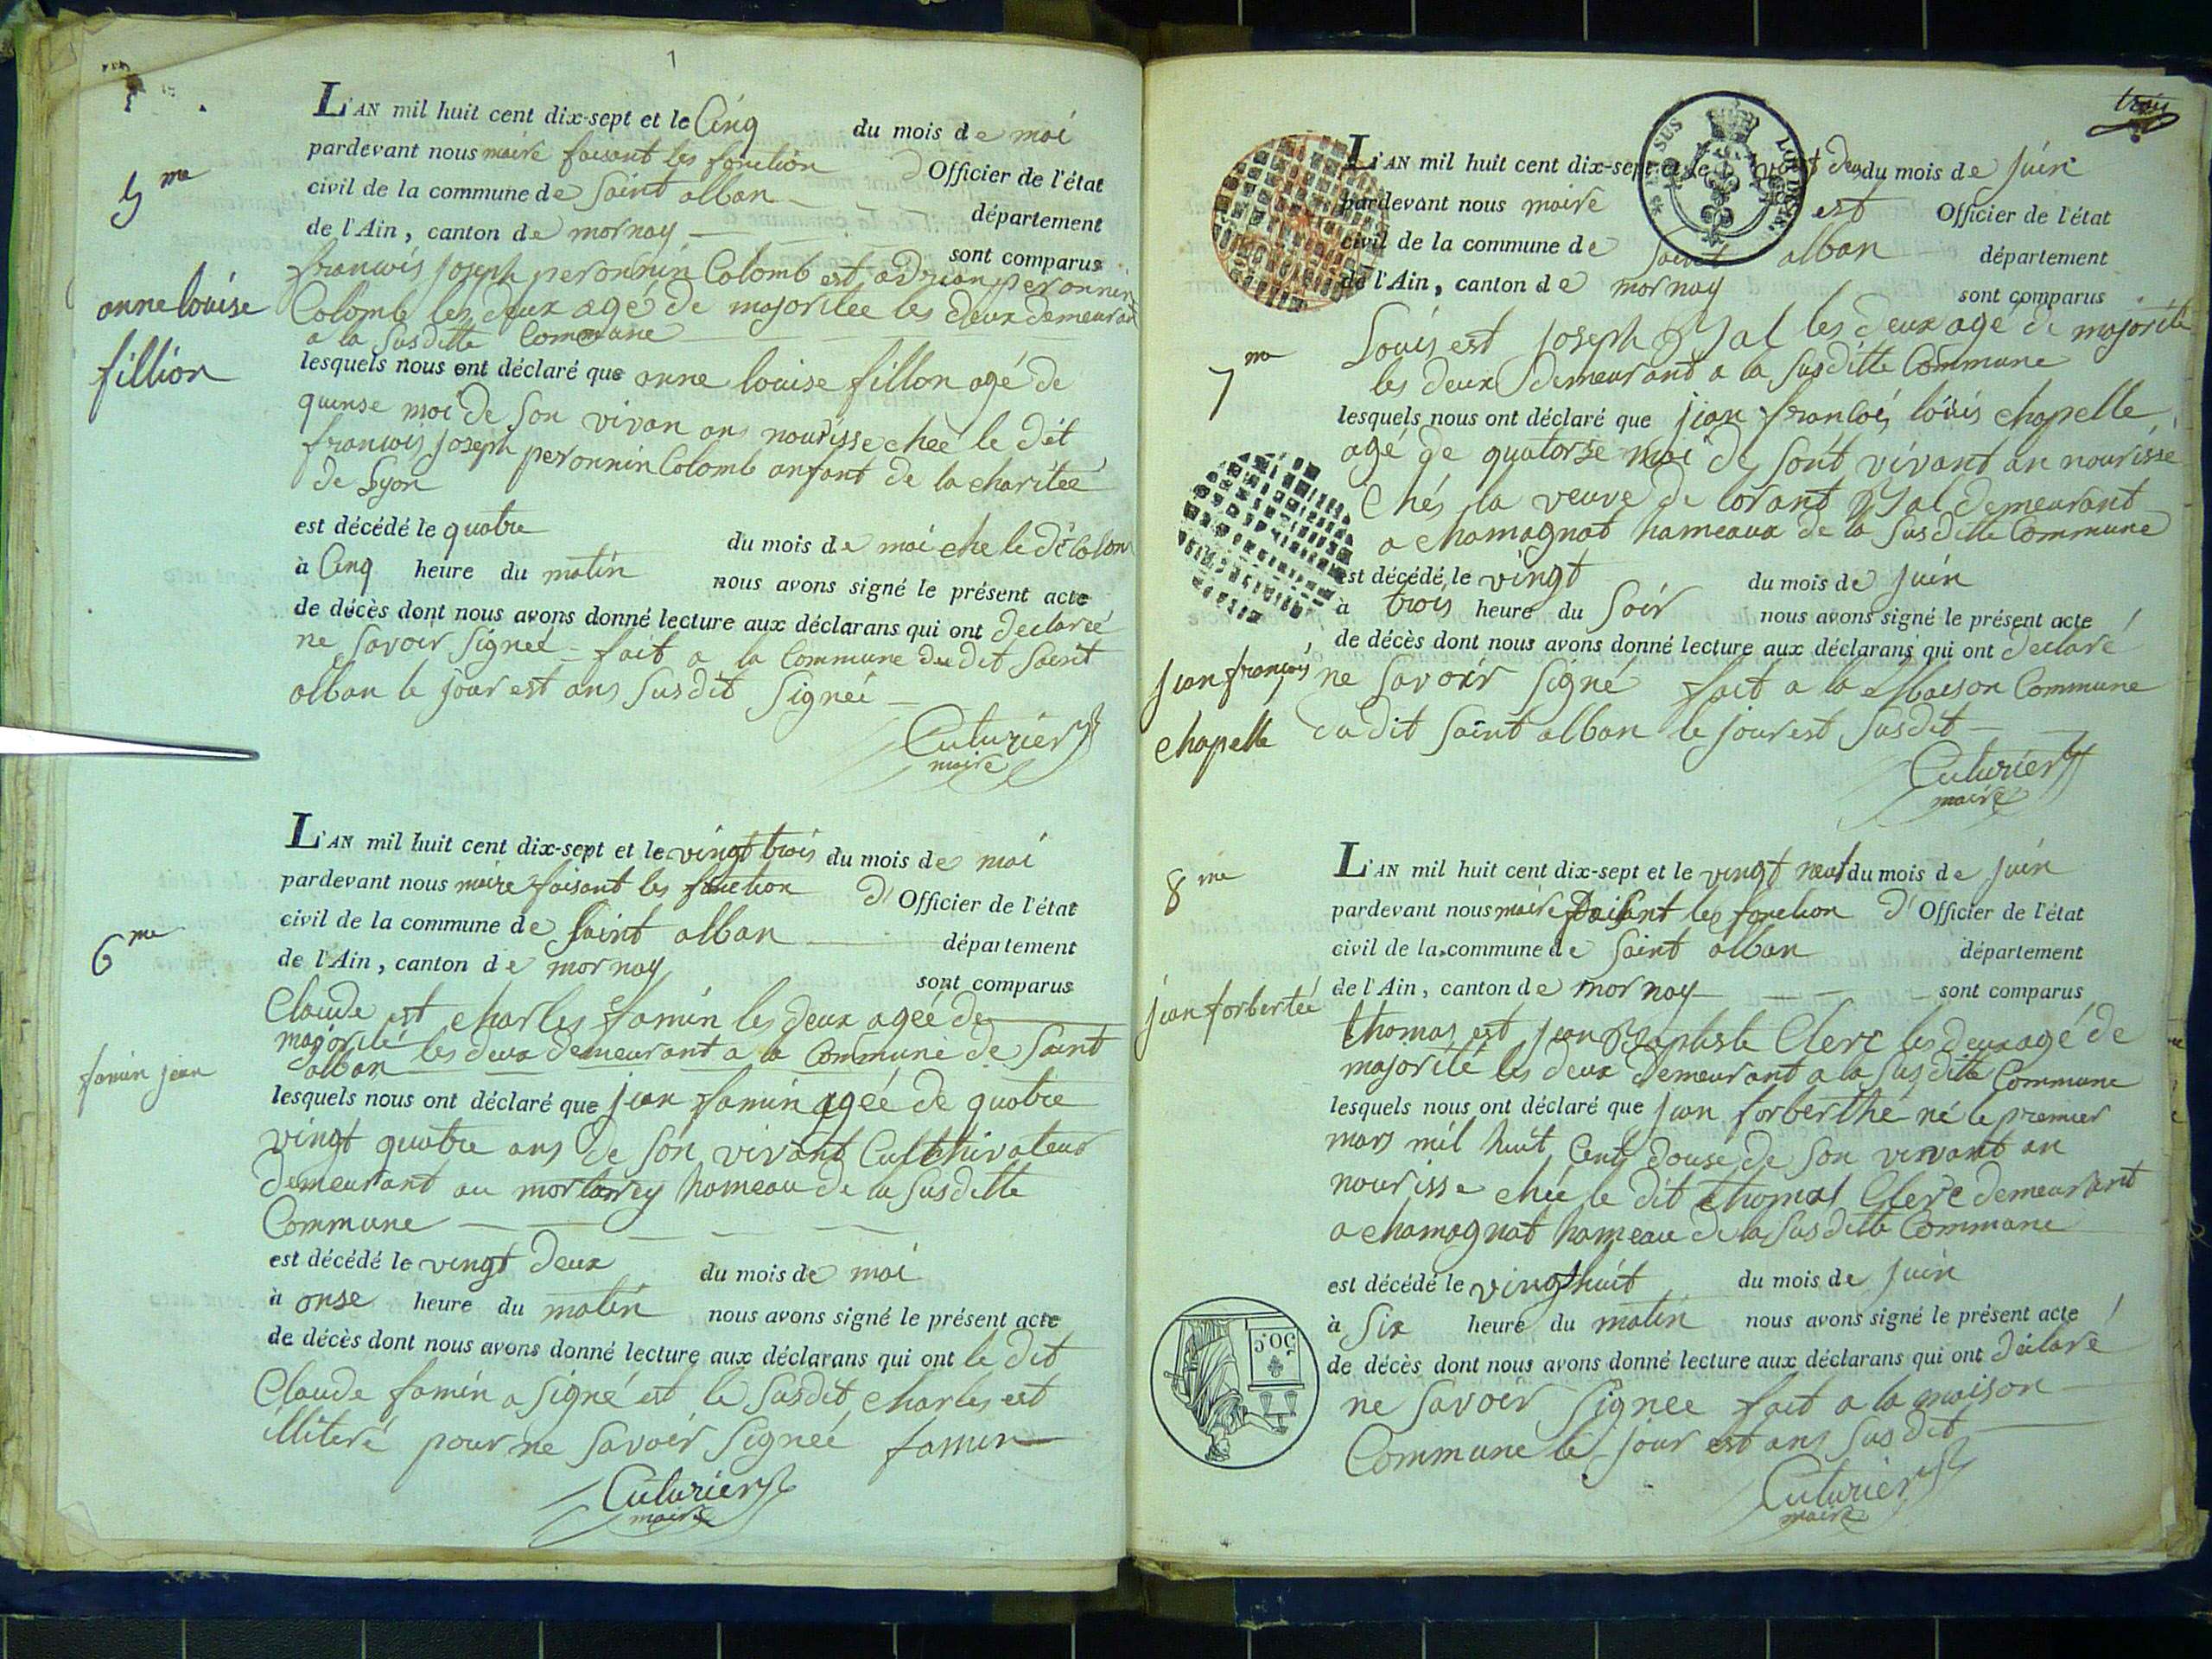 1
L'AN mil huit cent dix-sept et le Cinq du mois de mai
pardevant nous maire faisant les fonction d Officier de l'état
civil de la commune de Saint alban département
de l'Ain, canton de mornay sont comparus
francois joseph peronnin Colomb est adrian peronnin
Colomb les deux agé de majoritee les deux demeuran
a la susditte Commune
lesquels nous ont déclaré que anne louise fillon agé de
quinse moi de son vivan ans nourisse cheé le dit
francois joseph peronnin Colomb anfant de la charitee
de Lyon
est décédé le quatre du mois de mai che le dé Colom
à Cinq heure du matin nous avons signé le présent acte
de décès dont nous avons donné lecture aux déclarans qui ont declareé
ne savoir signeé fait a la Commune du dit Saint
alban le jour est ans susdit signeé
Cuturier
maire
5me
anne louise
fillion
L'AN mil huit cent dix-sept et le vingt trois du mois de mai
pardevant nous maire faisant les fonction d' Officier de l'état
civil de la commune de Saint alban département
de l'Ain, canton de mornay sont comparus
Claude est charles famin les deux ageé de
majorité les deux demeurant a la Commune de Saint
alban
lesquels nous ont déclaré que jean famin ageé de quatre
vingt quatre ans de son vivant Culthivateur
demeurant au mortarey hameau de la susditte
Commune
est décédé le vingt deux du mois de mai
à onse heure du matin nous avons signé le présent acte
de décès dont nous avons donné lecture aux déclarans qui ont le dit
Claude famin a signé est le susdit charles est
illiteré pour ne savoir signeé famin
Cuturier
maire
6me
famin jean
trois
L'AN mil huit cent dix-sept et le vingt deux du mois de juin
pardevant nous maire est Officier de l'état
civil de la commune de Saint alban département
de l'Ain, canton de mornay sont comparus
Louis est joseph Byal les deux agé de majorité
les deux demeurant a la susditte Commune
lesquels nous ont déclaré que jean francois louis chapelle
agé de quatorse moi de sont vivant an nourisse
chés la veuve de lorant Byal demeurant
a chamagnat hameaux de la susditte Commune
est décédé le vingt du mois de juin
à trois heure du soir nous avons signé le présent acte
de décès dont nous avons donné lecture aux déclarans qui ont declaré
ne savoir signé fait a la Maison Commune
du dit Saint alban le jour est susdit
Cuturier
maire
7me
jean francois
chapelle
L'AN mil huit cent dix-sept et le vingt neuf du mois de juin
pardevant nous maire faisant les fonction d' Officier de l'état
civil de la commune de Saint alban département
de l'Ain, canton de mornay sont comparus
thomas est jean Baptiste Clerc les deux agé de
majorité les deux demeurant a la susditte Commune
lesquels nous ont déclaré que jean forberthé né le premier
mars mil huit Cents douse de son vivant an
nourisse cheé le dit thomas Clerc demeurant
a chamagnat hameau de la susditte Commune
est décédé le vingt huit du mois de juin
à Six heure du matin nous avons signé le présent acte
de décès dont nous avons donné lecture aux déclarans qui ont déclaré
ne savoir signee fait a la maison
Commune le jour est ans susdit
Cuturier
maire
8me
jean forberteé
50 c